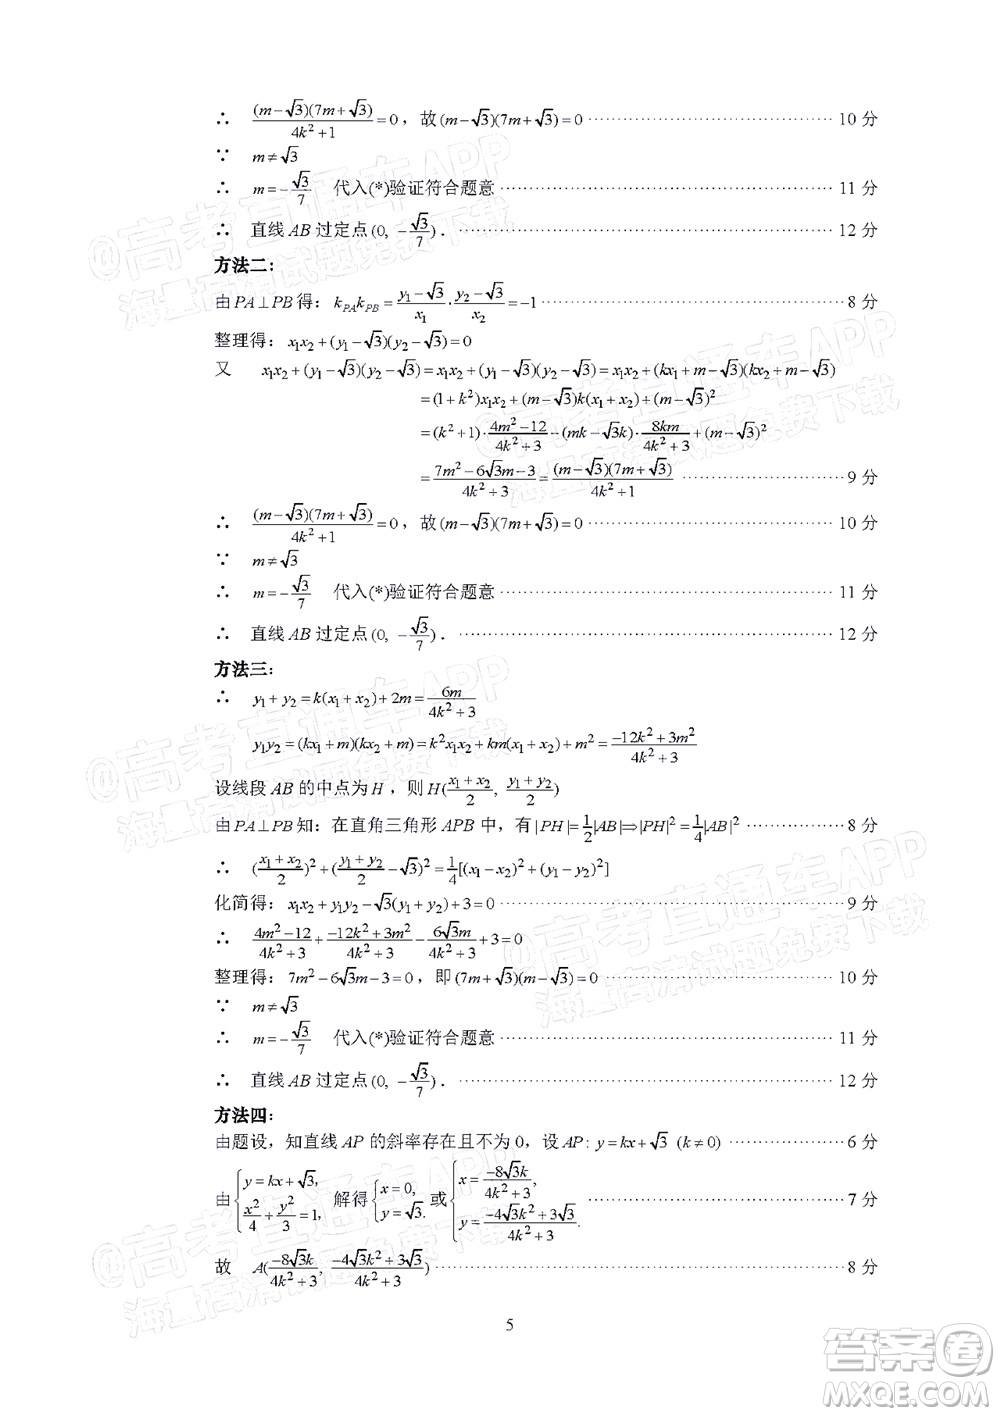 ∴ (m−√3)(7m+√3)/(4k²+1)=0，故(m−√3)(7m+√3)=0 ⋯⋯ 10 分
∵ m≠√3
∴ m=−√3/7 代入(*)验证符合题意 ⋯⋯ 11 分
∴ 直线 AB 过定点(0, −√3/7)． ⋯⋯ 12 分
方法二：
由PA⊥PB得：k_PA k_PB=(y₁−√3)/x₁·(y₂−√3)/x₂=−1 ⋯⋯ 8 分
整理得：x₁x₂+(y₁−√3)(y₂−√3)=0
又 x₁x₂+(y₁−√3)(y₂−√3)=x₁x₂+(y₁−√3)(y₂−√3)=x₁x₂+(kx₁+m−√3)(kx₂+m−√3)
=(1+k²)x₁x₂+(m−√3)k(x₁+x₂)+(m−√3)²
=(k²+1)·(4m²−12)/(4k²+3)−(mk−√3k)·8km/(4k²+3)+(m−√3)²
=(7m²−6√3m−3)/(4k²+3)=(m−√3)(7m+√3)/(4k²+1) ⋯⋯ 9 分
∴ (m−√3)(7m+√3)/(4k²+1)=0，故(m−√3)(7m+√3)=0 ⋯⋯ 10 分
∵ m≠√3
∴ m=−√3/7 代入(*)验证符合题意 ⋯⋯ 11 分
∴ 直线 AB 过定点(0, −√3/7)． ⋯⋯ 12 分
方法三：
∴ y₁+y₂=k(x₁+x₂)+2m=6m/(4k²+3)
y₁y₂=(kx₁+m)(kx₂+m)=k²x₁x₂+km(x₁+x₂)+m²=(−12k²+3m²)/(4k²+3)
设线段 AB 的中点为 H，则 H((x₁+x₂)/2, (y₁+y₂)/2)
由PA⊥PB知：在直角三角形 APB 中，有|PH|=1/2|AB|⇒|PH|²=1/4|AB|² ⋯⋯ 8 分
∴ ((x₁+x₂)/2)²+((y₁+y₂)/2−√3)²=1/4[(x₁−x₂)²+(y₁−y₂)²]
化简得：x₁x₂+y₁y₂−√3(y₁+y₂)+3=0 ⋯⋯ 9 分
∴ (4m²−12)/(4k²+3)+(−12k²+3m²)/(4k²+3)−6√3m/(4k²+3)+3=0
整理得：7m²−6√3m−3=0，即(7m+√3)(m−√3)=0 ⋯⋯ 10 分
∵ m≠√3
∴ m=−√3/7 代入(*)验证符合题意 ⋯⋯ 11 分
∴ 直线 AB 过定点(0, −√3/7)． ⋯⋯ 12 分
方法四：
由题设，知直线 AP 的斜率存在且不为 0，设 AP: y=kx+√3 (k≠0) ⋯⋯ 6 分
由{y=kx+√3, x²/4+y²/3=1, 解得{x=0, y=√3. 或{x=−8√3k/(4k²+3), y=(−4√3k²+3√3)/(4k²+3). ⋯⋯ 7 分
故 A(−8√3k/(4k²+3), (−4√3k²+3√3)/(4k²+3)) ⋯⋯ 8 分
5
@高考直通车APP
海量高清试题免费下载
答案圈
MXQE.COM